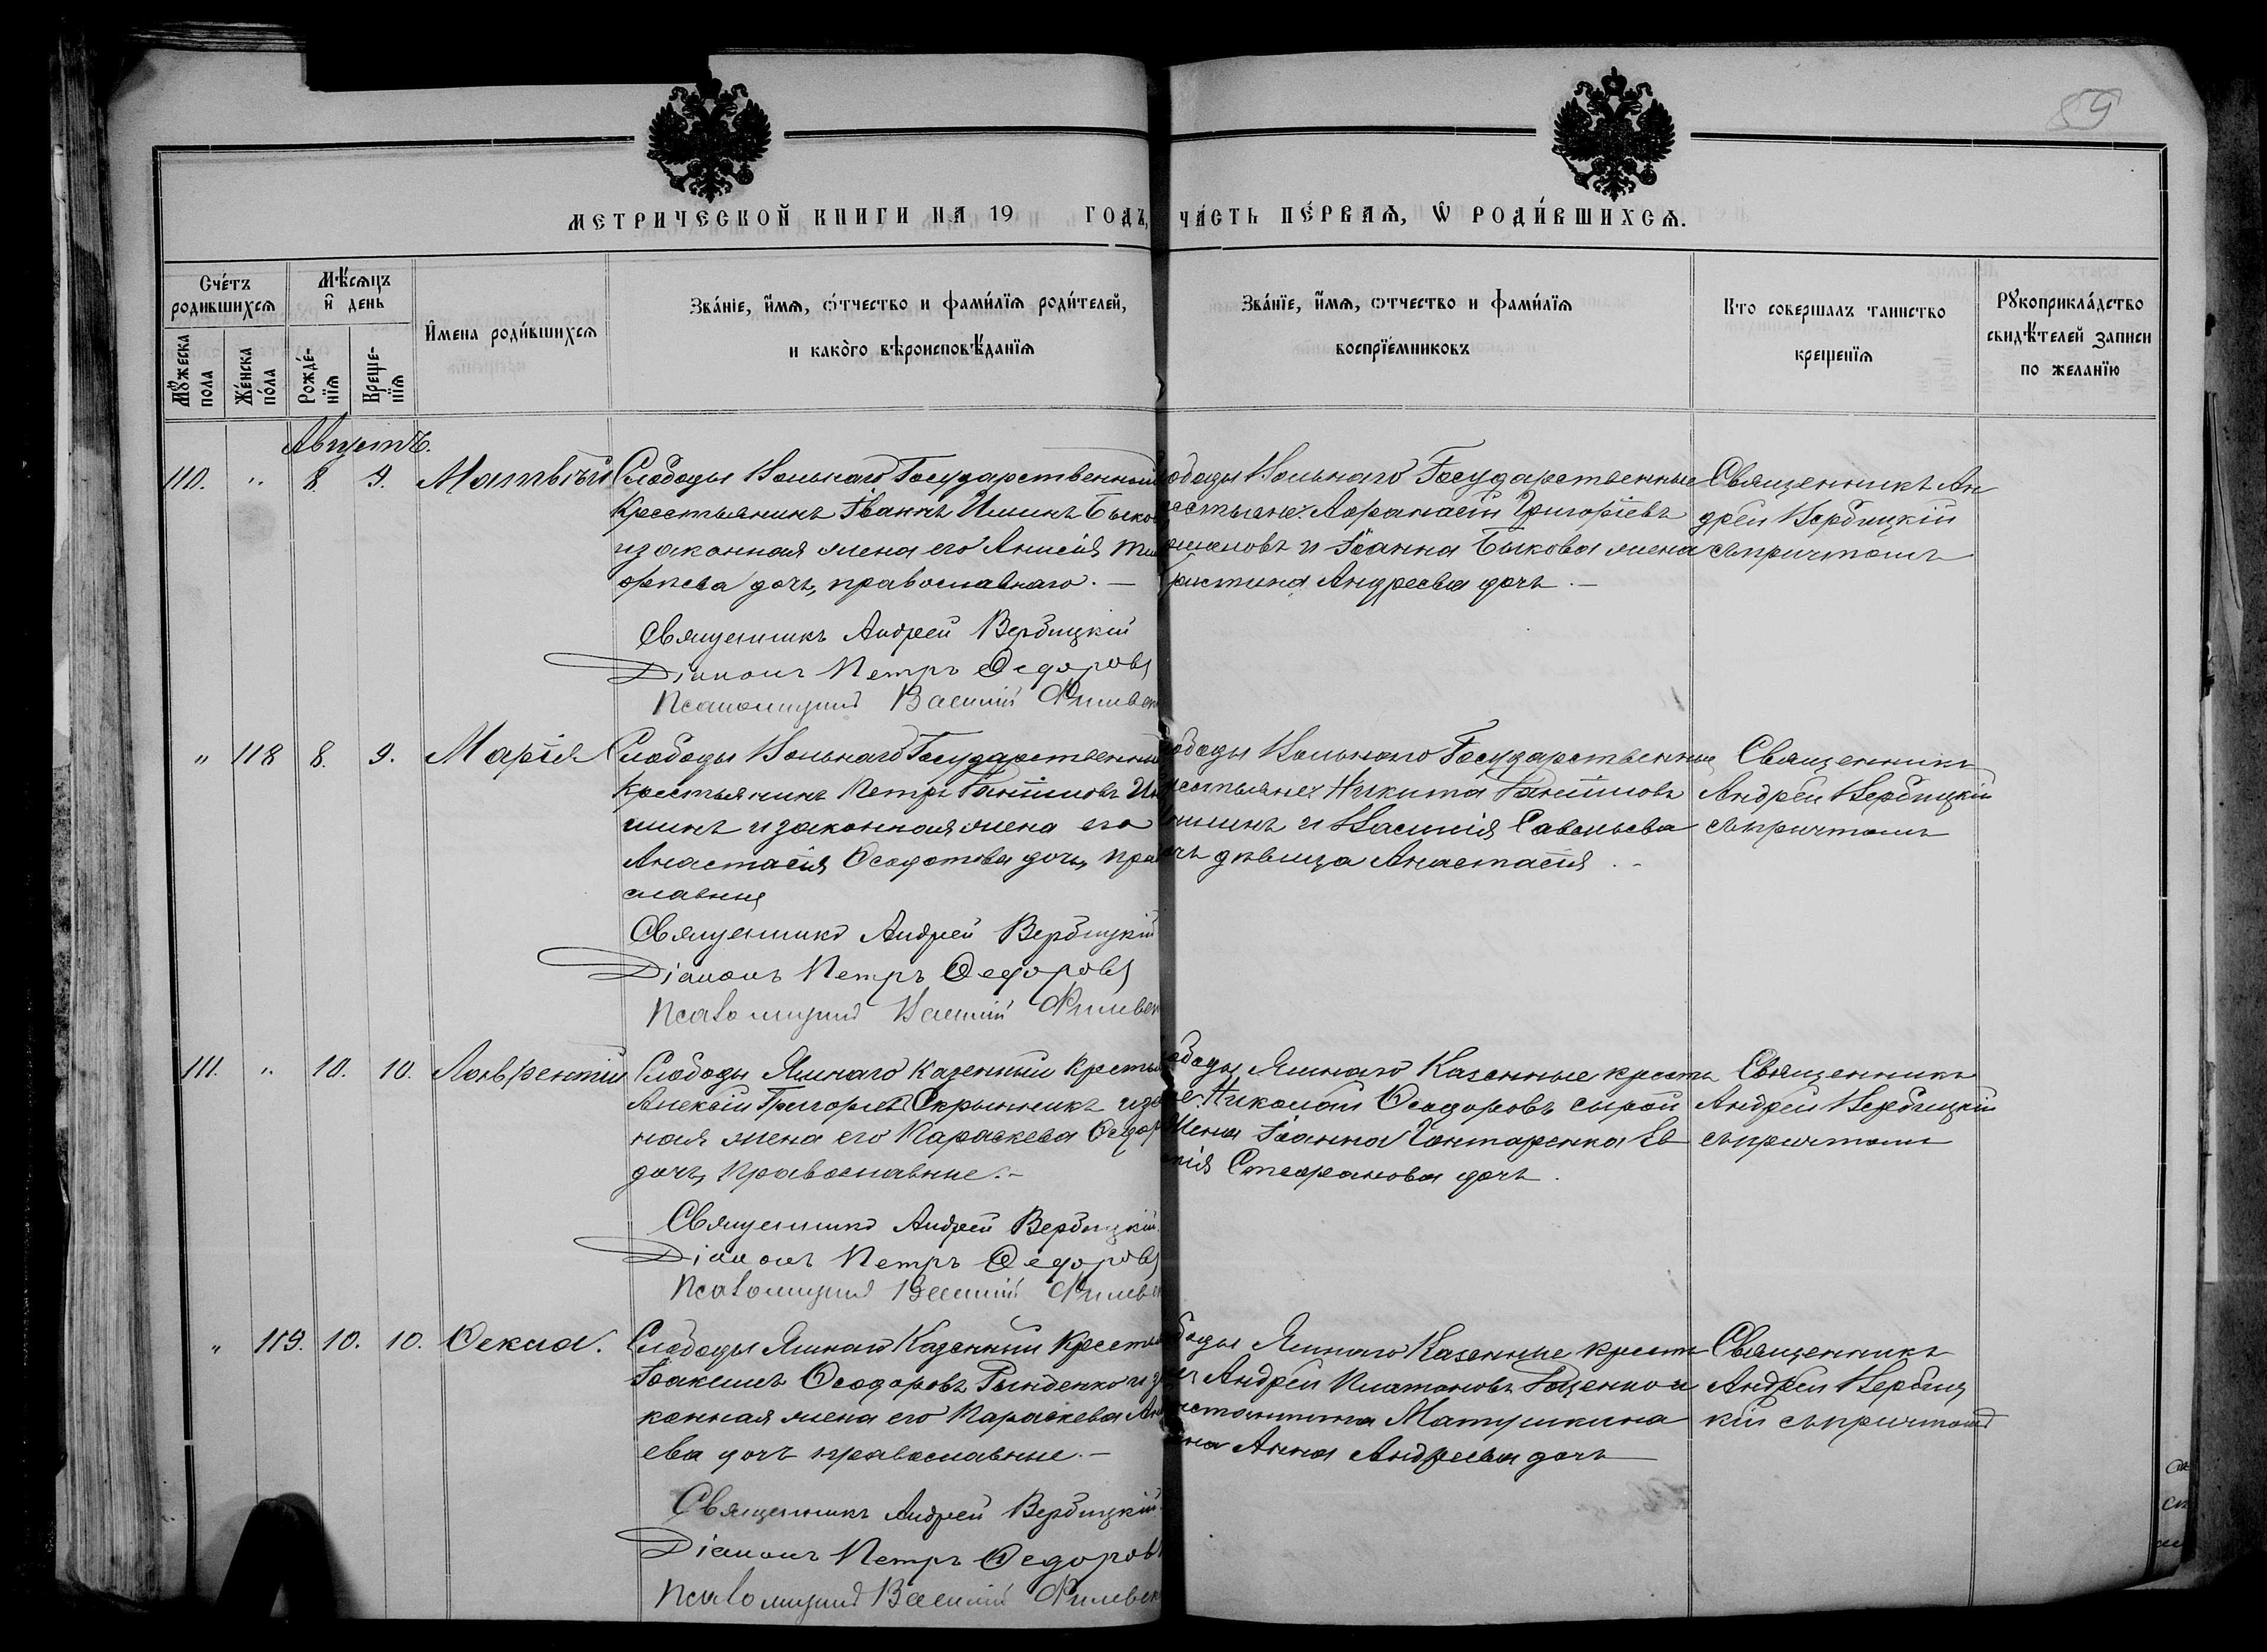 59
МЕТРИЧЕСКОЙ КНИГИ НА 19 ГОДЪ, ЧА́СТЬ ПЕ́РВАѦ, Ѡ҆ РОДИ́ВШИХСѦ.
Сче́тъ родившихсѧ
Мꙋ́жеска пола
Же́нска по́ла
Мѣ́сѧцъ и҆ день
Рожде́-нїѧ
Креще-нїѧ
И҆мена роди́вшихсѧ
Зва́нїе, и҆́мѧ, ѻ҆́тчество и фами́лїѧ роди́телей,
и како́го вѣроисповѣ́данїѧ
Зва́нїе, и҆́мѧ, ѻтчество и фами́лїѧ
воспрїе́мниковъ
Кто совершалъ таинство
крещенїѧ
Рꙋкоприкла́дство
свидѣ́телей записи
по желанїю
Августъ.
110. " 8. 9. Матвѣй
Слободы Вольнаго Государственный
Крестьянинъ Іваннъ Быков
и законная жена его Анисія
дочь, православнаго. —
Священникъ Андрей Вербицкій
Діаконъ Петръ Ѳедоровъ
Псаломщикъ Василій
ободы Вольнаго Государственные
рестьяне: Аѳанасій Григоріевъ
и Іоанна Быкова жена
ристина Андреева дочь. —
Священникъ Ан
дрей Вербицкій
съ причтомъ
" 118 8. 9. Марія
Слободы Вольнаго Государственный
Крестьянинъ Петръ
шинъ и законная жена его
Анастасія Ѳеодотова дочь, пра
славныя
Священникъ Андрей Вербицкій
Діаконъ Петръ Ѳедоровъ
Псаломщикъ Василій
ободы Вольнаго Государственные
рестьяне: Никита
и Василія Савельева
очь дѣвица Анастасія. —
Священникъ
Андрей Вербицкій
съ причтомъ
111. " 10. 10. Лаврентій
Слободы Ямнаго казенный Крестья
Алексѣй Григорьевъ Скрынникъ и за
ная жена его Параскева Ѳедор
дочь, Православные. —
Священникъ Андрей Вербицкій
Діаконъ Петръ Ѳедоровъ
Псаломщикъ Василій
ободы Ямнаго Казенные кресть
не: Николай Ѳеодоровъ Сырой
Жена Іоанна Гонтаренка Ев
Стефанова дочь.
Священникъ
Андрей Вербицкій
съ причтомъ
" 119. 10. 10. Ѳекла.
Слободы Ямнаго Казенный Крестья
Іоакимъ Ѳеодоровъ и за
конная жена его Параскева Ан
ева дочь православные. —
Священникъ Андрей Вербицкій
Діаконъ Петръ Ѳедоровъ
Псаломщикъ Василій
боды Ямнаго Казенные кресть
Андрей Платоновъ и
Матушкина
ена Анна Андреева дочь
Священникъ
Андрей Вербиц
кій съ причтомъ